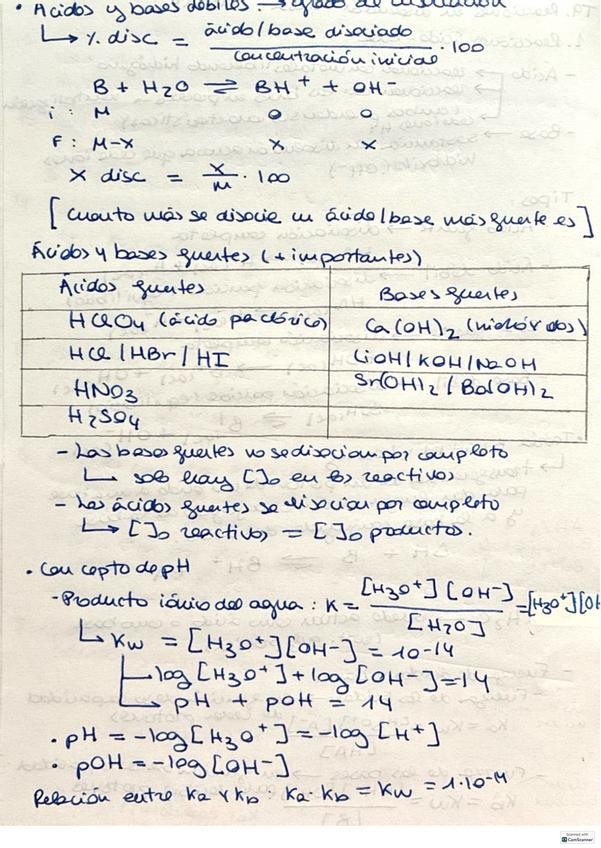 • Ácidos y bases débiles → grado de disociación
↳ % disc = ácido/base disociado / concentración inicial · 100
B + H2O ⇌ BH+ + OH-
i: M 0 0
F: M-x x x
X disc = x/M · 100
[Cuanto más se disocie un ácido/base más fuerte es]
Ácidos y bases fuertes (+ importantes)
Ácidos fuertes Bases fuertes
HClO4 (ácido perclórico) Ca(OH)2 (hidróxidos)
HCl/HBr/HI LiOH/KOH/NaOH
HNO3 Sr(OH)2/Ba(OH)2
H2SO4
- Las bases fuertes no se disocian por completo
↳ solo hay []o en los reactivos
- Los ácidos fuertes se disocian por completo
↳ []o reactivos = []o productos.
• Concepto de pH
- Producto iónico del agua: K = [H3O+][OH-] / [H2O] = [H3O+][OH
↳ Kw = [H3O+][OH-] = 10-14
log[H3O+] + log[OH-] = 14
↳ pH + pOH = 14
• pH = -log[H3O+] = -log[H+]
• pOH = -log[OH-]
Relación entre Ka y Kb: Ka·Kb = Kw = 1·10-14
Scanned with
CamScanner